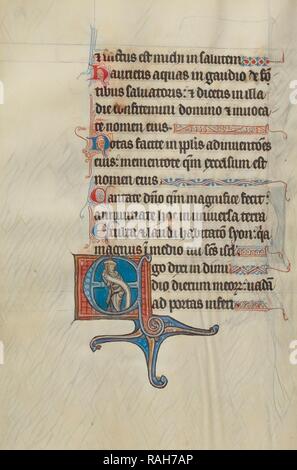 & factus est michi in salutem
Haurietis aquas in gaudio de fon
tibus saluatoris: & dicetis in illa
die confitemini domino & inuoca
te nomen eius
Notas facite in pl̄is adinuentões
eius: mementote qm̄ excelsum est
nomen eius
Cantate dño qm̄ magnifice fecit:
annuntiate hoc in uniuersa terra
Exulta & lauda habitatio syon: qa
magnus ī medio tui sc̄s isrl̄
Ego dixi in dimi
dio dierum meor: uadā
ad portas inferi
RAH7AP